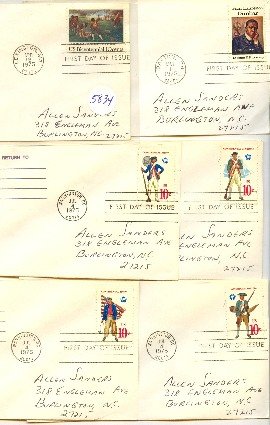 US Bicentennial IOcents
1975
FIRST DAY OF ISSUE
ALLEN SANDERS
318 ENGLEMAN AVE
BURLINGTON, NC
27215
5674
1975
FIRST DAY OF ISSUE
ALLEN SANDERS
318 ENGLEMAN AVE
BURLINGTON, N.C.
27215
RETURN TO
JUL
4
1975
10c
FIRST DAY OF ISSUE
ALLEN SANDERS
318 ENGLEMAN AVE
BURLINGTON, N.C
27215
10c
FIRST DAY OF ISSUE
SANDERS
ENGLEMAN AVE
BURLINGTON, N.C.
27215
JUL
4
1975
10c
FIRST DAY OF ISSUE
ALLEN SANDERS
318 ENGLEMAN AVE
BURLINGTON, N.C
27215
JUL
4
1975
10c
FIRST DAY OF ISSUE
ALLEN SANDERS
318 ENGLEMAN AVE
BURLINGTON, N.C.
27215